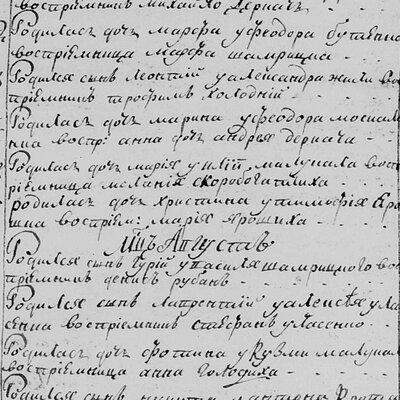 воспрїемникъ михайло Дерначъ
Родилась дочъ марфа уфеодора бутенка
воспрїемница марфа шамрицка
Родился сынъ леонтїй уалеѯандра вос
прїемникъ трофимъ холоднїй
Родилась дочъ марина уфеодора москале
нка воспрї: анна дочъ андрея дернача
Родилась дочъ марїя у малупала воспр
їемница меланїя скоробогатчиха
родилась дочъ христина утимофея Яро
ша воспрїем: марїя ярошиха
Мцъ Августъ
Родился сынъ Гурїй увасиля шамрицкого вос
прїемникъ денисъ рубанъ
Родился сынъ лаврентїй уалеѯѣя
воспрїемникъ стефанъ
Родилась дочъ фотина у кузми малупала
воспрїемница анна голодиха
Родился сынъ никита